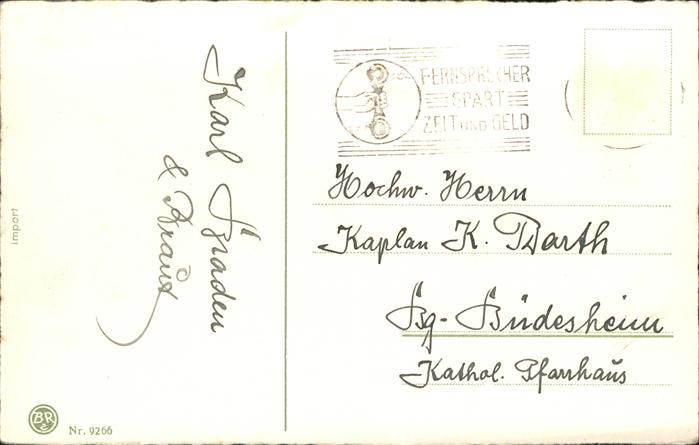 Karl Spaden
& Braut
FERNSPRECHER
SPART
ZEIT UND GELD
Hochw. Herrn
Kaplan K. Barth
Bg-Büdesheim
Kathol. Pfarrhaus
Import
BR
Nr. 9266